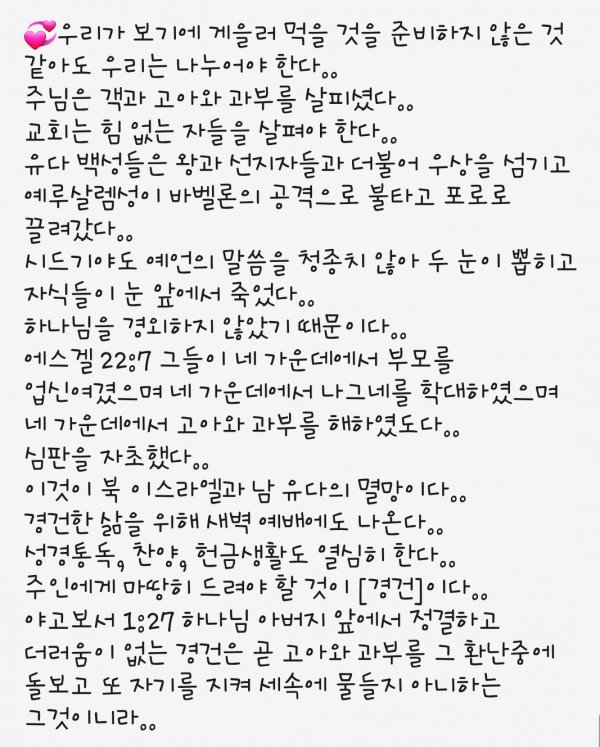 💞우리가 보기에 게을러 먹을 것을 준비하지 않은 것
같아도 우리는 나누어야 한다。。
주님은 객과 고아와 과부를 살피셨다。。
교회는 힘 없는 자들을 살펴야 한다。。
유다 백성들은 왕과 선지자들과 더불어 우상을 섬기고
예루살렘성이 바벨론의 공격으로 불타고 포로로
끌려갔다。。
시드기야도 예언의 말씀을 청종치 않아 두 눈이 뽑히고
자식들이 눈 앞에서 죽었다。。
하나님을 경외하지 않았기 때문이다。。
에스겔 22:7 그들이 네 가운데에서 부모를
업신여겼으며 네 가운데에서 나그네를 학대하였으며
네 가운데에서 고아와 과부를 해하였도다。。
심판을 자초했다。。
이것이 북 이스라엘과 남 유다의 멸망이다。。
경건한 삶을 위해 새벽 예배에도 나온다。。
성경통독, 찬양, 헌금생활도 열심히 한다。。
주인에게 마땅히 드려야 할 것이 [경건]이다。。
야고보서 1:27 하나님 아버지 앞에서 정결하고
더러움이 없는 경건은 곧 고아와 과부를 그 환난중에
돌보고 또 자기를 지켜 세속에 물들지 아니하는
그것이니라。。